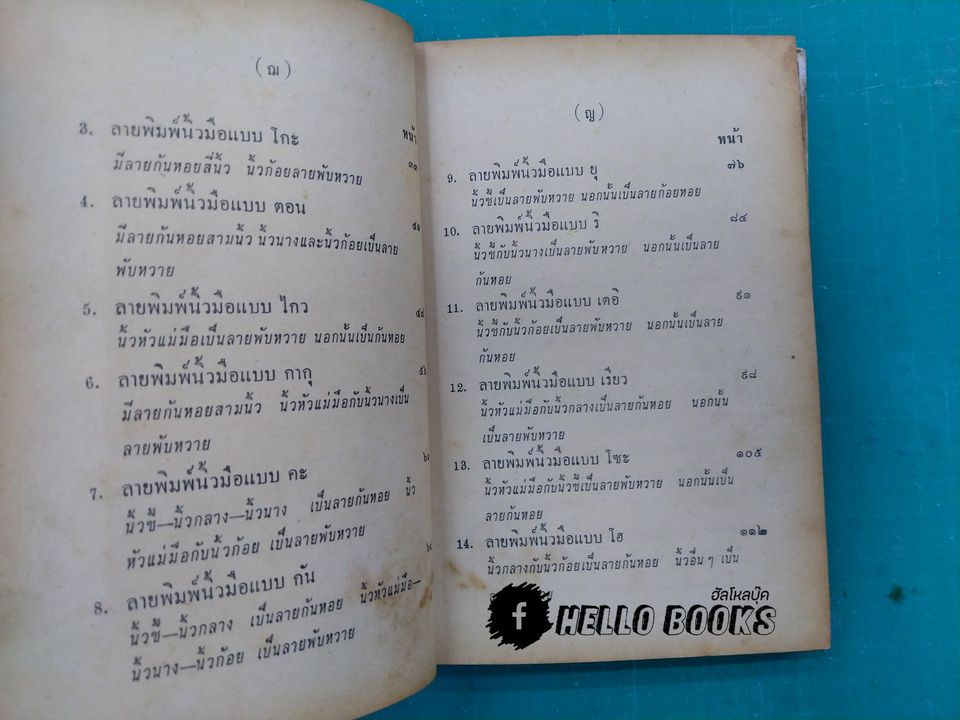 (ฌ)
หน้า
3. ลายพิมพ์นิ้วมือแบบ โกะ ๓๓
มีลายก้นหอยสี่นิ้ว นิ้วก้อยลายพับหวาย
4. ลายพิมพ์นิ้วมือแบบ ตอน ๔๑
มีลายก้นหอยสามนิ้ว นิ้วนางและนิ้วก้อยเป็นลาย
พับหวาย
5. ลายพิมพ์นิ้วมือแบบ ไกว ๔๘
นิ้วหัวแม่มือเป็นลายพับหวาย นอกนั้นเป็นก้นหอย
6. ลายพิมพ์นิ้วมือแบบ กากุ
มีลายก้นหอยสามนิ้ว นิ้วหัวแม่มือกับนิ้วนางเป็น
ลายพับหวาย
7. ลายพิมพ์นิ้วมือแบบ คะ
นิ้วชี้—นิ้วกลาง—นิ้วนาง เป็นลายก้นหอย นิ้ว
หัวแม่มือกับนิ้วก้อย เป็นลายพับหวาย
8. ลายพิมพ์นิ้วมือแบบ กัน
นิ้วชี้—นิ้วกลาง เป็นลายก้นหอย นิ้วหัวแม่มือ—
นิ้วนาง—นิ้วก้อย เป็นลายพับหวาย
(ญ)
หน้า
9. ลายพิมพ์นิ้วมือแบบ ยุ ๗๖
นิ้วชี้เป็นลายพับหวาย นอกนั้นเป็นลายก้อยหอย
10. ลายพิมพ์นิ้วมือแบบ ริ ๘๔
นิ้วชี้กับนิ้วนางเป็นลายพับหวาย นอกนั้นเป็นลาย
ก้นหอย
11. ลายพิมพ์นิ้วมือแบบ เตอิ ๙๑
นิ้วชี้กับนิ้วก้อยเป็นลายพับหวาย นอกนั้นเป็นลาย
ก้นหอย
12. ลายพิมพ์นิ้วมือแบบ เรียว ๙๘
นิ้วหัวแม่มือกับนิ้วกลางเป็นลายก้นหอย นอกนั้น
เป็นลายพับหวาย
13. ลายพิมพ์นิ้วมือแบบ โซะ ๑๐๕
นิ้วหัวแม่มือกับนิ้วชี้เป็นลายพับหวาย นอกนั้นเป็น
ลายก้นหอย
14. ลายพิมพ์นิ้วมือแบบ โฮ ๑๑๒
นิ้วกลางกับนิ้วก้อยเป็นลายก้นหอย นิ้วอื่น ๆ เป็น
ฮัลโหลบุ๊ค
f HELLO BOOKS